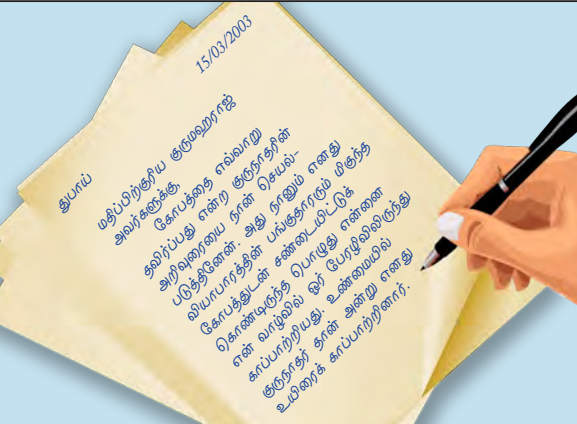 15/03/2003
துபாய்
மதிப்பிற்குரிய குருமஹராஜ்
அவர்களுக்கு,
கோபத்தை எவ்வாறு
தவிர்ப்பது என்ற குருநாதரின்
அறிவுரையை நான் செயல்-
படுத்தினேன். அது நானும் எனது
வியாபாரத்தின் பங்குதாரரும் மிகுந்த
கோபத்துடன் சண்டையிட்டுக்
கொண்டிருந்த பொழுது என்னை
என் வாழ்வில் ஓர் பேரழிவிலிருந்து
காப்பாற்றியது. உண்மையில்
குருநாதர் தான் அன்று எனது
உயிரைக் காப்பாற்றினார்.